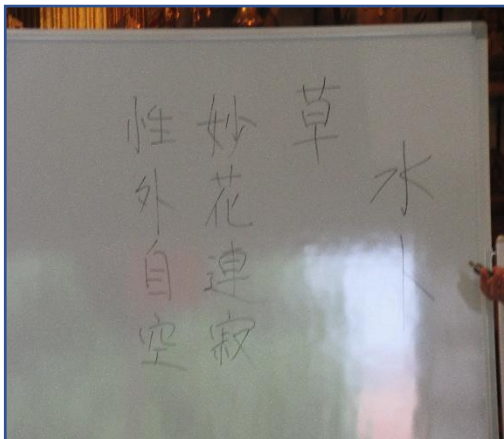 水卜
草
妙花連寂
性外自空